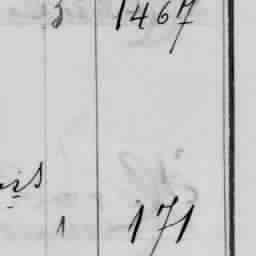 3 1467
1 171